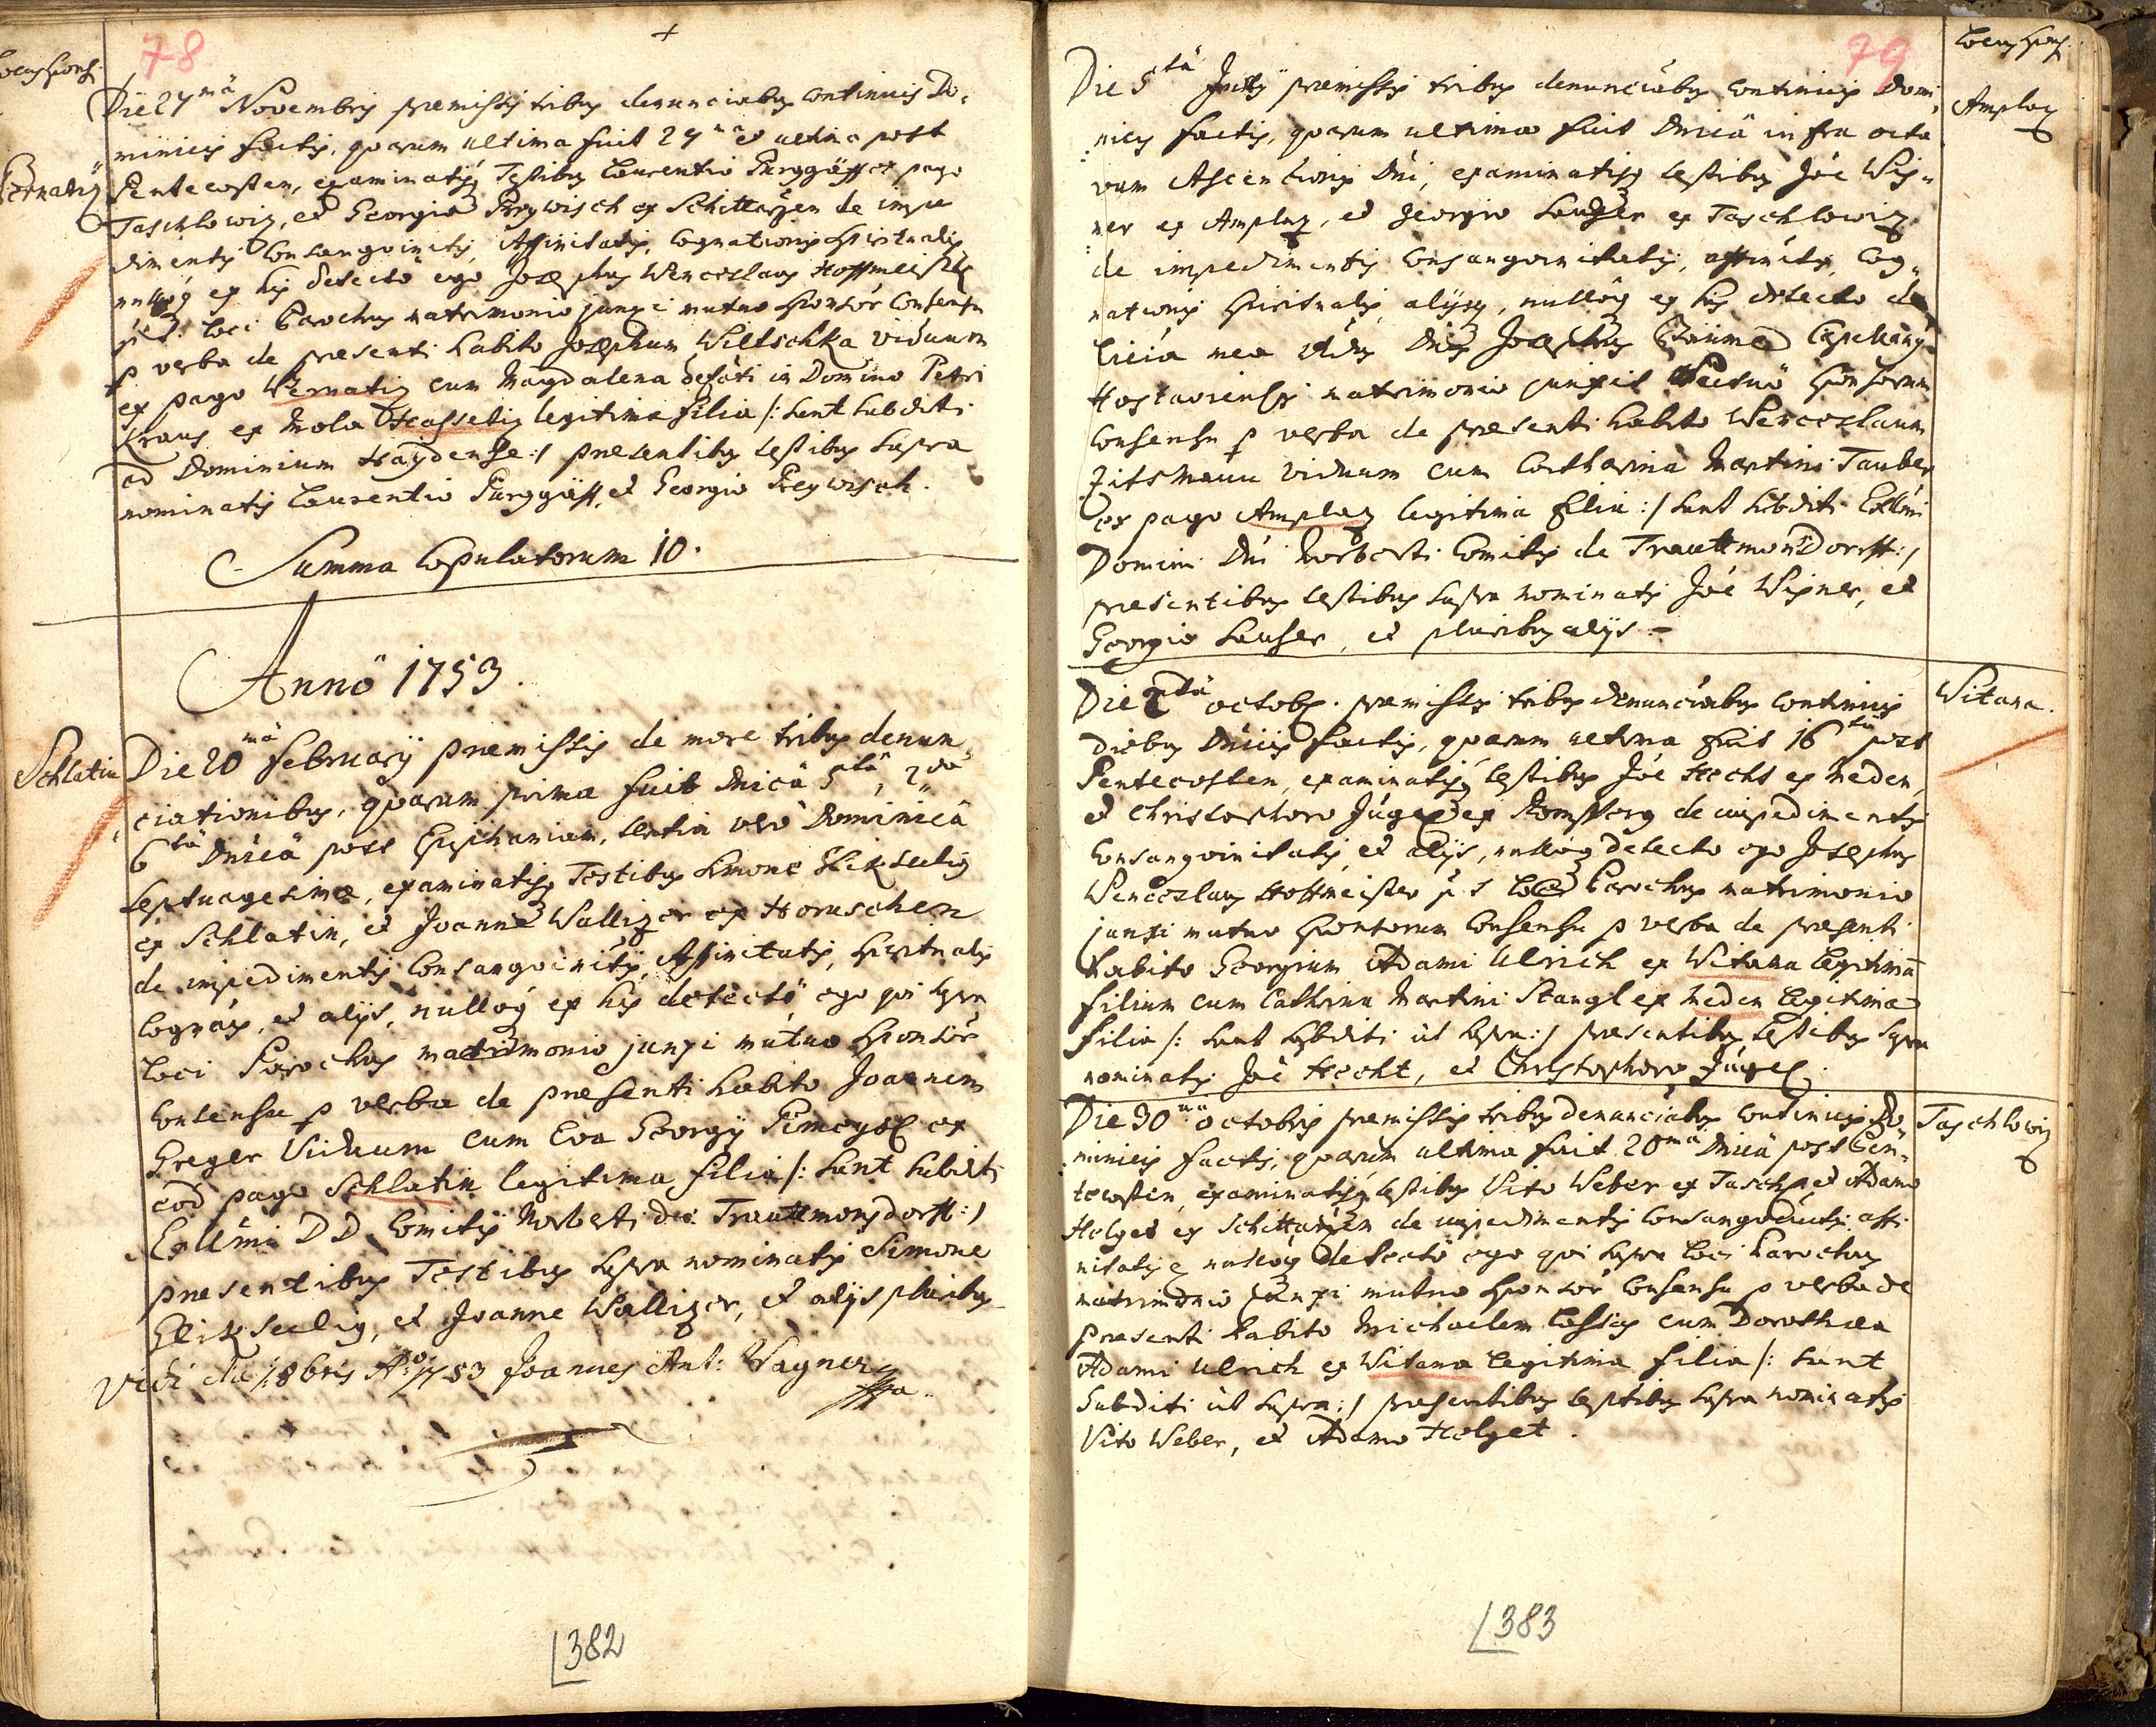 78
Locus spons:
Die 27mâ Novembris praemissis tribus denunciâbus continuis Do-
minicis factis, quarum ultima fuit 24ta et ultima post
Wernatiz
Pentecosten, examinatisq Testibus Laurentio Purggräff ex pago
Taschlowiz, et Georgio Preywisch ex Schittarzen de impe
dimentis Consanguinitis, Affinitatis, Cognationis Spiritualis
nulloq ex his detecto ego Josephus Wenceslaus Hoffmeister
p: t: loci Parochus matrimonio junxi mutuo Sponsor Consensu
p verba de praesenti habito Josephum Wiltschka viduum
ex pago Wernatiz cum Magdalena defuti in Domino Petri
Kraus ex Mola Hassetiz legitima filia /: sunt subditi
ad Dominium Haydense :/ praesentibus testibus supra
nominatis Laurentio Purggräff, et Georgio Preywisch.
Summa Copulatorum 10.
Annô 1753.
Schlatin
Die 20mâ February praemissis de more tribus denun
ciationibus, quarum prima fuit Dnicâ 5tâ, 2da
6tâ Dnicâ post Epiphaniam, tertia verò Dominicâ
septuagesimae, examinatisq Testibus Simone Glikseelig
ex Schlatin, et Joanne Wallizer ex Horuschen
de impedimentis Consanguinitis, Affinitatis, Spiritualis
Cognâis, et alijs, nulloq ex his detecto, ego qui supra
loci Parochus matrimonio junxi mutuo Sponsor
Consensu p verba de praesenti habito Joannem
Greger Viduum cum Eva Georgij Pimeysl ex
eod pago Schlatin legitima filia /: sunt subditi
Exllmi D D Comitis Norberti de Trauttmonsdorff :/
praesentibus Testibus supra nominatis Simone
Glikseelig, et Joanne Wallizer, et alijs pluribus
Vidi die 1 8bris Ao 1753 Joannes Ant: Wagner
382
79
Locus spons:
Amplaz
Die 5tâ Juny praemissis tribus denunciâbus continuis Domi
nicis factis, quarum ultima fuit Dnicâ infra octa
vam Ascensionis Dni, examinatisq testibus Jôe Wis-
ner ex Amplaz, et Georgio Lauser ex Taschlowiz
de impedimentis Consanguinitatis, affinitis, Cog-
nationis Spiritualis, alijsq, nulloq ex his detecto de
liciâ mea Adm Dnus Josephus Capellanus
Hostauiensis matrimonio junxit Mutuô Sponsorum
Consensu p verba de praesenti habito Wenceslaum
Zitsmann viduum cum Catharina Martini Tauber
ex pago Amplaz legitima filia :/ sunt subditi Exllmi
Domini Dni Norberti Comitis de Trauttmonsdorff :/
praesentibus testibus supra nominatis Jôe Wisner, et
Georgio Lauser, et pluribus alijs.
Witana.
Die 2dâ octobr. praemissis tribus denunciâbus continuis
diebus Dnicis factis, quarum ultima fuit 16tâ post
Pentecosten, examinatisq testibus Jôe Hecht ex Meden,
et Christophoro Jugel ex Romsperg de impedimentis
Consanguinitatis, et alijs, nulloq detecto ego Josephus
Wenceslaus Hoffmeister p t loci Parochus matrimonio
junxi mutuo Sponsorum Consensu p verba de praesenti
habito Georgium Adami Ulrich ex Witana legitimū
filium cum Cathrina Martini Stangl ex Meden legitima
filia /: sunt subditi ut supra :/ praesentibus testibus supra
nominatis Jôe Hecht, et Christophoro Jugel.
Taschlowiz
Die 30mâ octobris praemissis tribus denunciâbus continuis Do
minicis factis, quarum ultima fuit 20mâ Dnicâ post Pen-
tecosten, examinatisq testibus Vito Weber ex Taschz, et Adamo
Holget ex Schittarzen de impedimentis Consanguinitis, affi
nitatisq nulloq detecto ego qui supra loci Parochus
matrimonio junxi mutuo Sponsor Consensu p verba de
praesenti habito Michaelem Cassius cum Dorothaea
Adami Ulrich ex Witana legitima filia /: sunt
Subditi ut supra :/ praesentibus testibus supra nominatis
Vito Weber, et Adamo Holget.
383